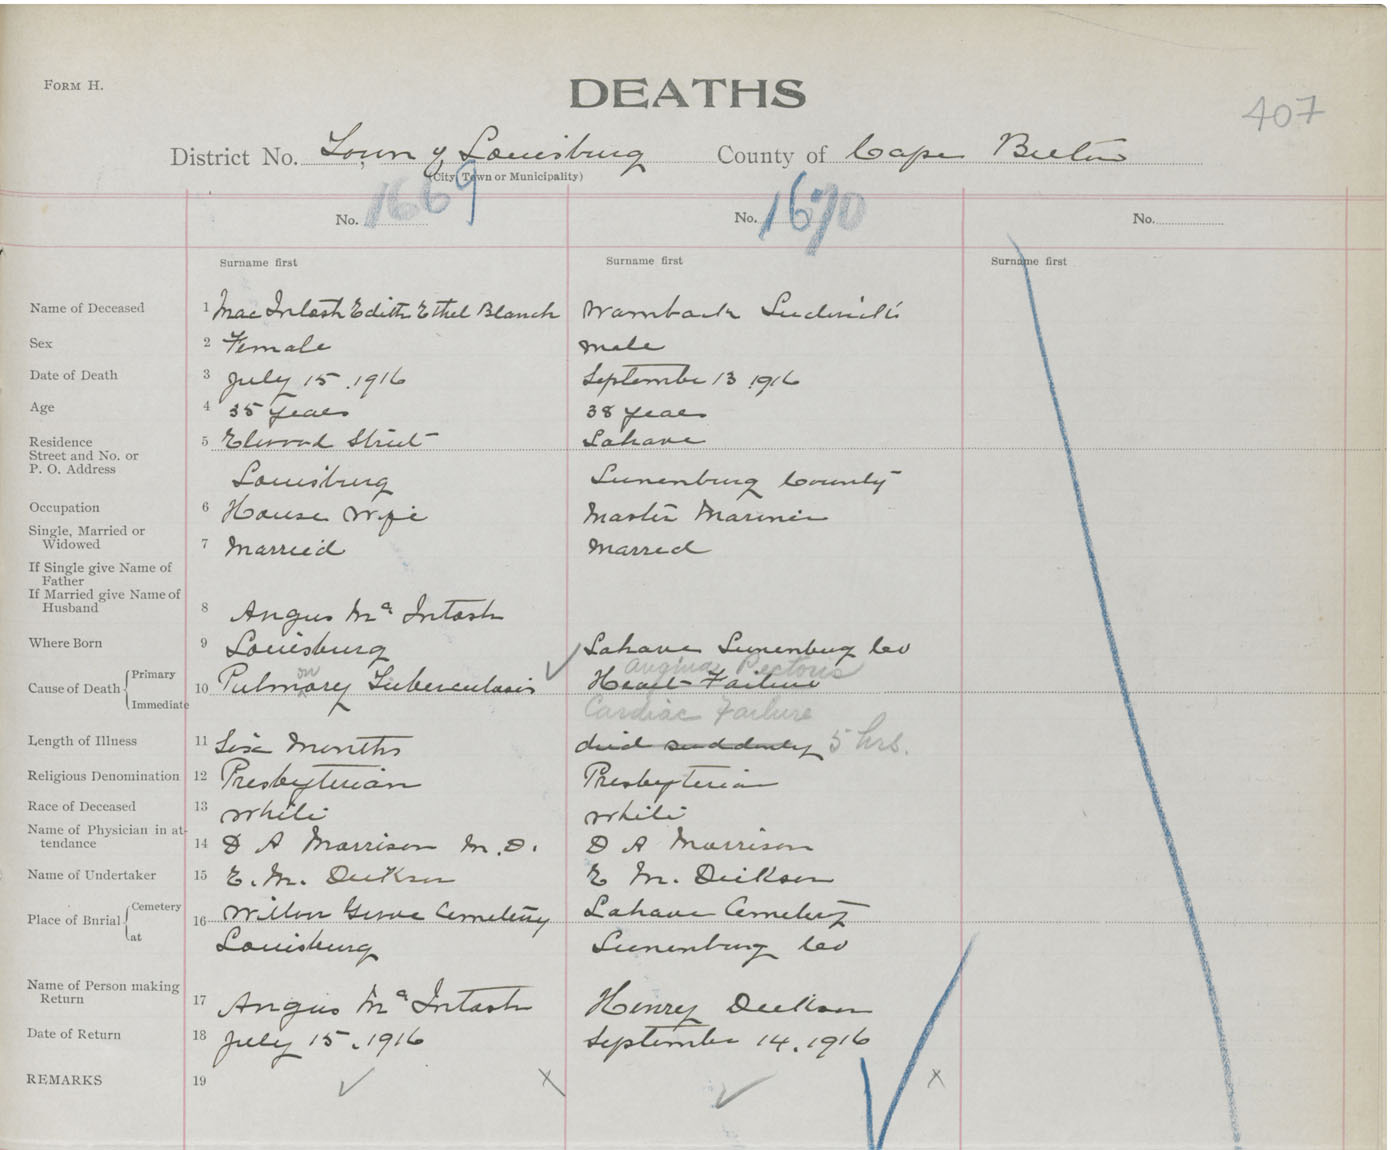 FORM H.
DEATHS
407
District No. Town of Louisburg County of Cape Breton
(City, Town or Municipality)
No. 1669 No. 1670 No.
Surname first Surname first Surname first
Name of Deceased 1 Mac Intosh Edith Ethel Blanch Wamback
Sex 2 Female male
Date of Death 3 July 15, 1916 September 13 1916
Age 4 35 years 38 years
Residence 5 Street Lahave
Street and No. or
P. O. Address Louisburg Lunenburg County
Occupation 6 House Wife Master Mariner
Single, Married or
Widowed 7 Married Married
If Single give Name of
Father
If Married give Name of
Husband 8 Angus Mc Intosh
Where Born 9 Louisburg Lahave Lunenburg Co
Angina Pectoris
Cause of Death { Primary Immediate 10 Pulmonary Tuberculosis Heart Failure
Cardiac Failure
Length of Illness 11 Six Months died suddenly 5 hrs.
Religious Denomination 12 Presbyterian Presbyterian
Race of Deceased 13 White White
Name of Physician in at-
tendance 14 D A Morrison M.D. D A Morrison
Name of Undertaker 15 E. M. Dickson E M. Dickson
Place of Burial { Cemetery at 16 Grove Cemetery Lahave Cemetery
Louisburg Lunenburg Co
Name of Person making
Return 17 Angus Mc Intosh Henry Dickson
Date of Return 18 July 15, 1916 September 14, 1916
REMARKS 19